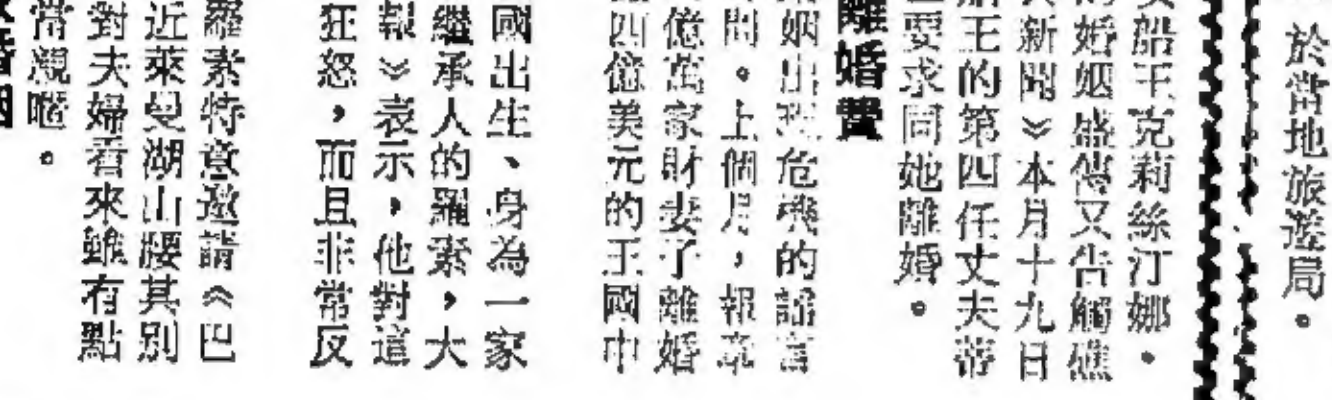 於當地旅遊局。
女船王克莉絲汀娜・
的婚姻盛傳又告觸礁
新聞》本月十九日
船王的第四任丈夫蒂
要求同她離婚。
離婚費
姻出現危機的謠言
問。上個月,報章
億萬家財妻子離婚
四億美元的王國中
國出生、身為一家
繼承人的羅素,大
報》表示,他對這
狂怒,而且非常反
羅素特意邀請《巴
近萊曼湖山腰其別
對夫婦看來雖有點
當親暱。
婚姻